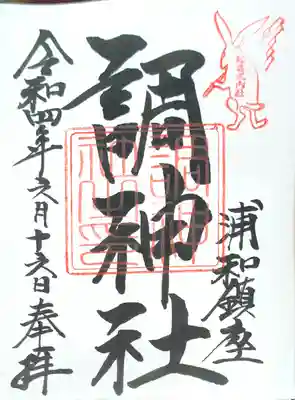 浦和鎮座
調神社
令和四年六月十六日奉拝